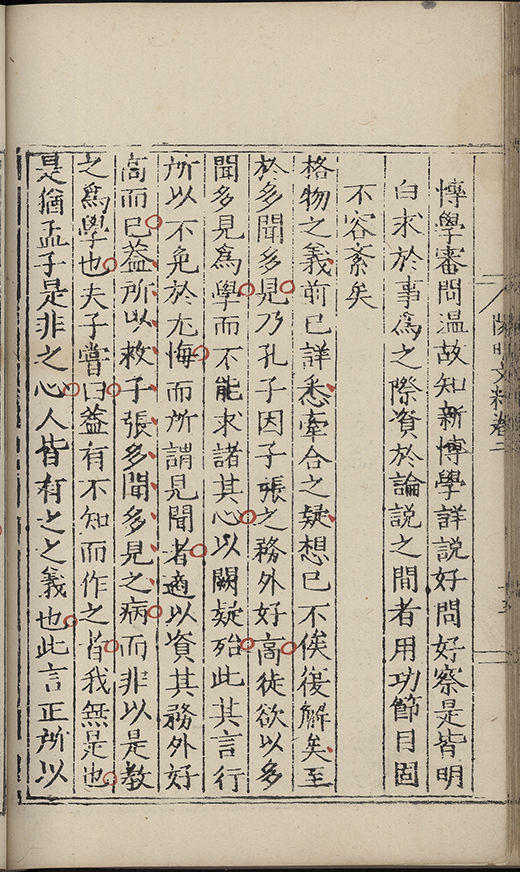 博學審問溫故知新博學詳說好問好察是皆明
白求於事爲之際資於論說之間者用功節目固
不容紊矣
格物之義前已詳悉牽合之疑想已不俟復解矣至
於多聞多見乃孔子因子張之務外好高徒欲以多
聞多見爲學而不能求諸其心以闕疑殆此其言行
所以不免於尤悔而所謂見聞者適以資其務外好
高而已葢所以救子張多聞多見之病而非以是敎
之爲學也夫子嘗曰葢有不知而作之者我無是也
是猶孟子是非之心人皆有之之義也此言正所以
陽明文粹卷二